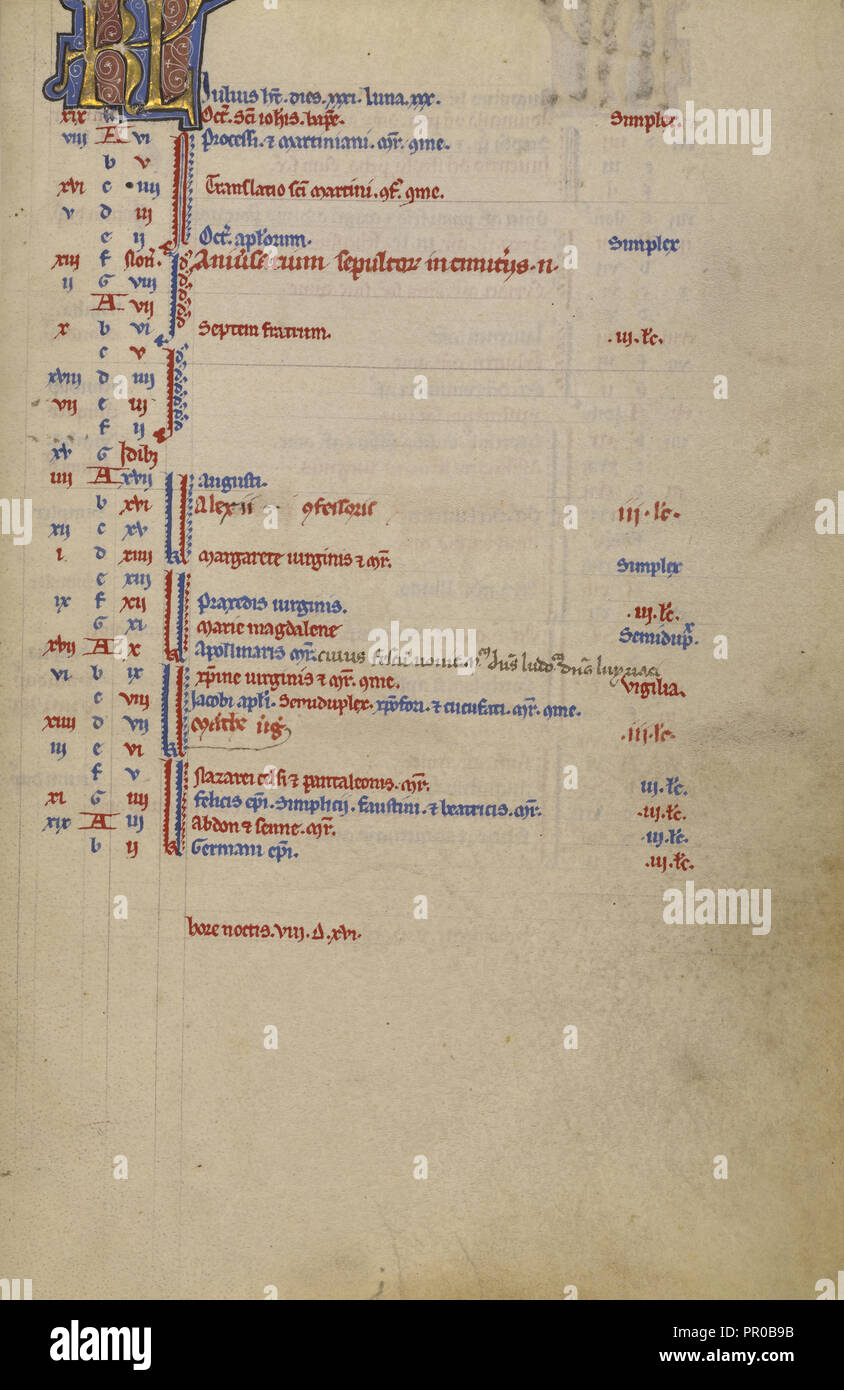 KL
Iulius ħt. dies. xxxi. luna. xxx.
xix A Oct̃. Scĩ ioħis. bapṫe. Simplex.
viii A vi Processi. ⁊ martiniani. mr̃. 9me.
b v
xvi c iiii Translatio scĩ martini. 9f̃. 9me.
v d iii
e ii Oct̃. apl̃orum. Simplex
xiii f Non̄. Aniu͛sarium sepultor in cimit͛ijs. n.
ii G viii
A vii
x b vi Septem fratrum. .iii. lc̃.
c v
xviii d iiii
vii e iii
f ii
xv G Idib3
iiii A xvii Augusti.
b xvi Alexii 9fessoris iii. lc̃.
xii c xv
i d xiiii Margarete uirginis ⁊ mr̃. Simplex
e xiii
ix f xii Praxedis uirginis. .iii. lc̃.
G xi Marie magdalene Semidup̃x.
xvii A x Apollinaris mr̃. cuius
vi b ix Xpĩne uirginis ⁊ mr̃. 9me. Vigilia.
c viii Jacobi apl̃i. Semiduplex. xpõfori. ⁊ cucufati. mr̃. 9me.
xiiii d vii .iii. lc̃.
iii e vi
f v Nazarei celsi ⁊ pantaleonis. mr̃. iii. lc̃.
xi G iiii felicis ep̃i. Simplicij. faustini. ⁊ beatricis. mr̃. .iii. lc̃.
xix A iii Abdon ⁊ senne. mr̃. .iii. lc̃.
b ii Germani ep̃i. .iii. lc̃.
hore noctis. viii. d. xvi.
alamy
Image ID: PR0B9B
www.alamy.com